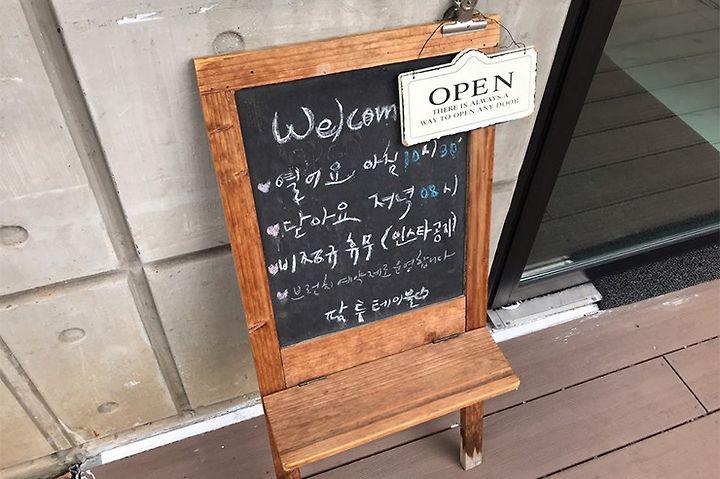 Welcom
OPEN
THERE IS ALWAYS A
WAY TO OPEN ANY DOOR
열어요 아침 10시 30'
닫아요 저녁 08시
비정규 휴무 (인스타공지)
브런치 예약제로 운영합니다
팔투테이블